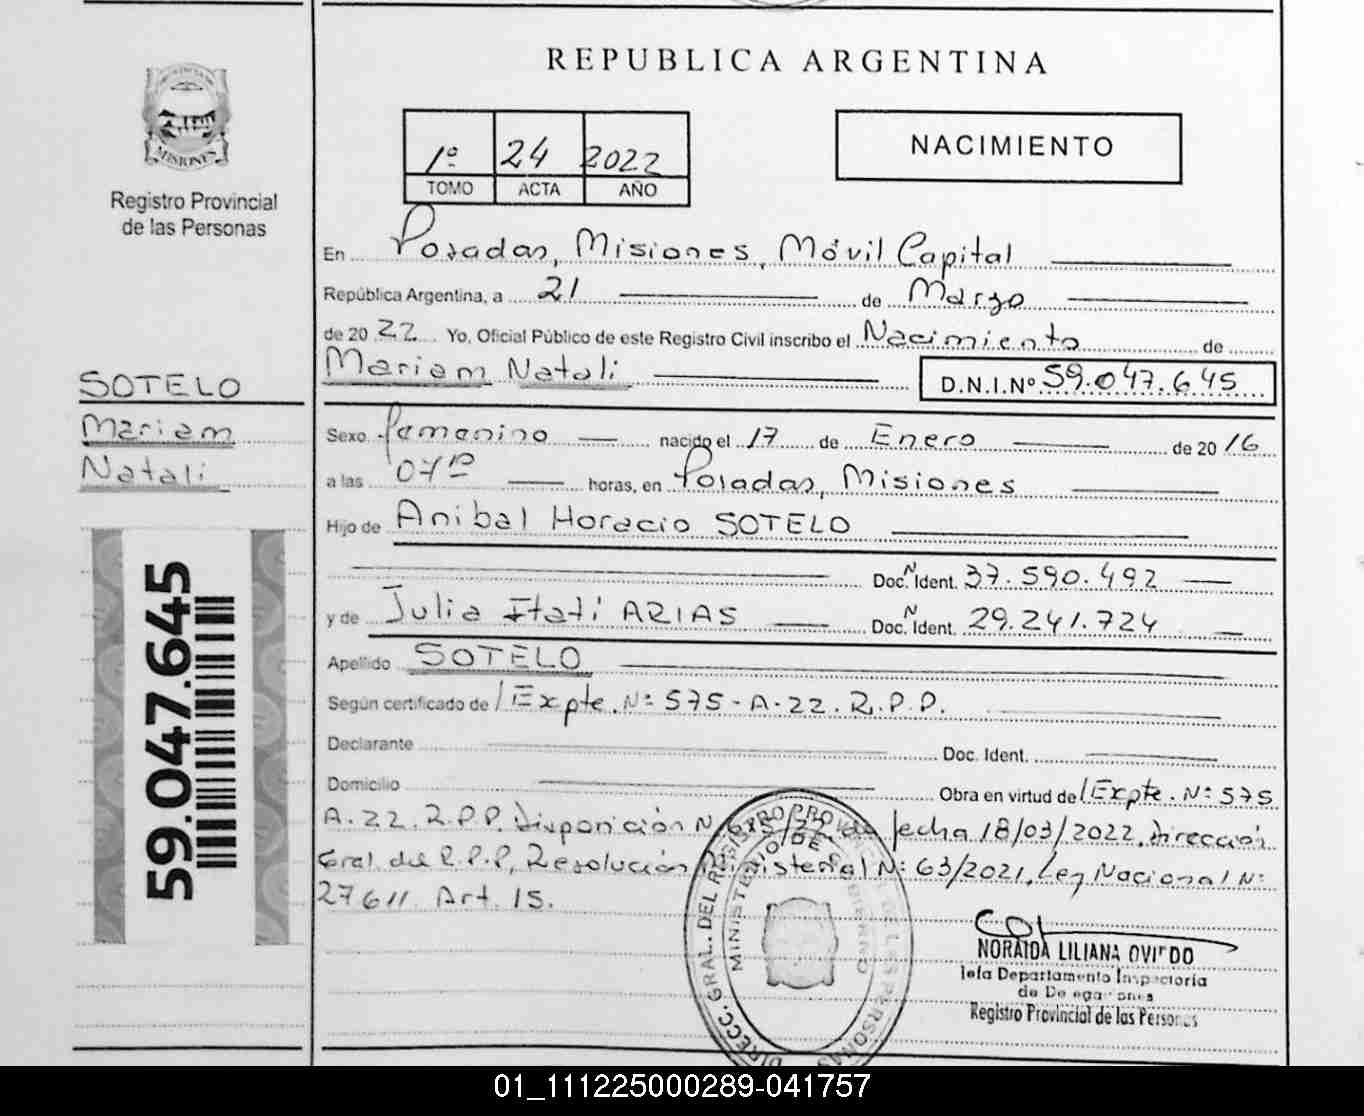 REPUBLICA ARGENTINA
MISIONES
Registro Provincial
de las Personas
1º 24 2022
TOMO ACTA AÑO
NACIMIENTO
En Posadas, Misiones, Móvil Capital
República Argentina, a 21 de Marzo
de 2022 Yo, Oficial Público de este Registro Civil inscribo el Nacimiento de
Mariam Natali D.N.I.Nº 59.047.645
SOTELO
Mariam
Natali
59.047.645
Sexo femenino nacido el 17 de Enero de 2016
a las horas, en Posadas, Misiones
Hijo de Anibal Horacio SOTELO
Doc. N Ident. 37.590.492
y de Julia Itatí ARIAS Doc. N Ident. 29.241.724
Apellido SOTELO
Según certificado de Expte. Nº 575-A-22. R.P.P.
Declarante Doc. Ident.
Domicilio Obra en virtud de Expte. Nº 575
A.22. R.P.P. Disposición N de fecha 18/03/2022, Dirección
Gral. del R.P.P, Resolución Ministerial Nº 63/2021, Ley Nacional Nº
27611 Art. 15.
DIRECC. GRAL. DEL REGISTRO PROVINCIAL DE LAS PERSONAS
MINISTERIO DE GOBIERNO
NORAIDA LILIANA OVIEDO
Jefa Departamento Inspectoria
de Delegaciones
Registro Provincial de las Personas
01_111225000289-041757